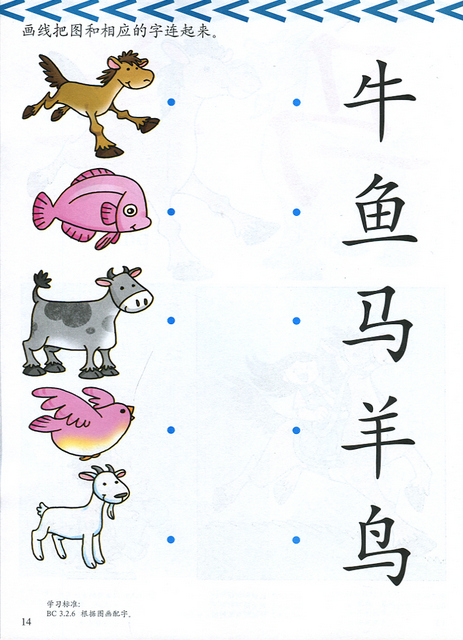 画线把图和相应的字连起来。
牛
鱼
马
羊
鸟
学习标准：
BC 3.2.6 根据图画配字。
14